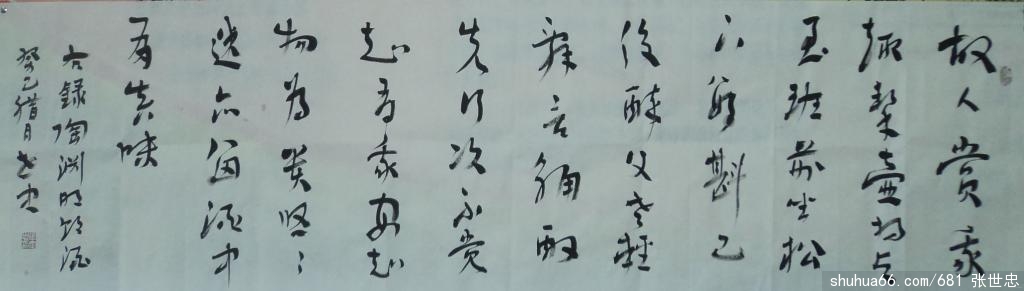 故人賞我
趣挈壺相与
至班荆坐松
下數斟已
復醉父老雜
亂言觴酌
失行次不覺
知有我安知
物為貴悠〻
迷所留酒中
有真味
右錄陶渊明飲酒
癸巳腊月世忠
shuhua66.com/681 张世忠